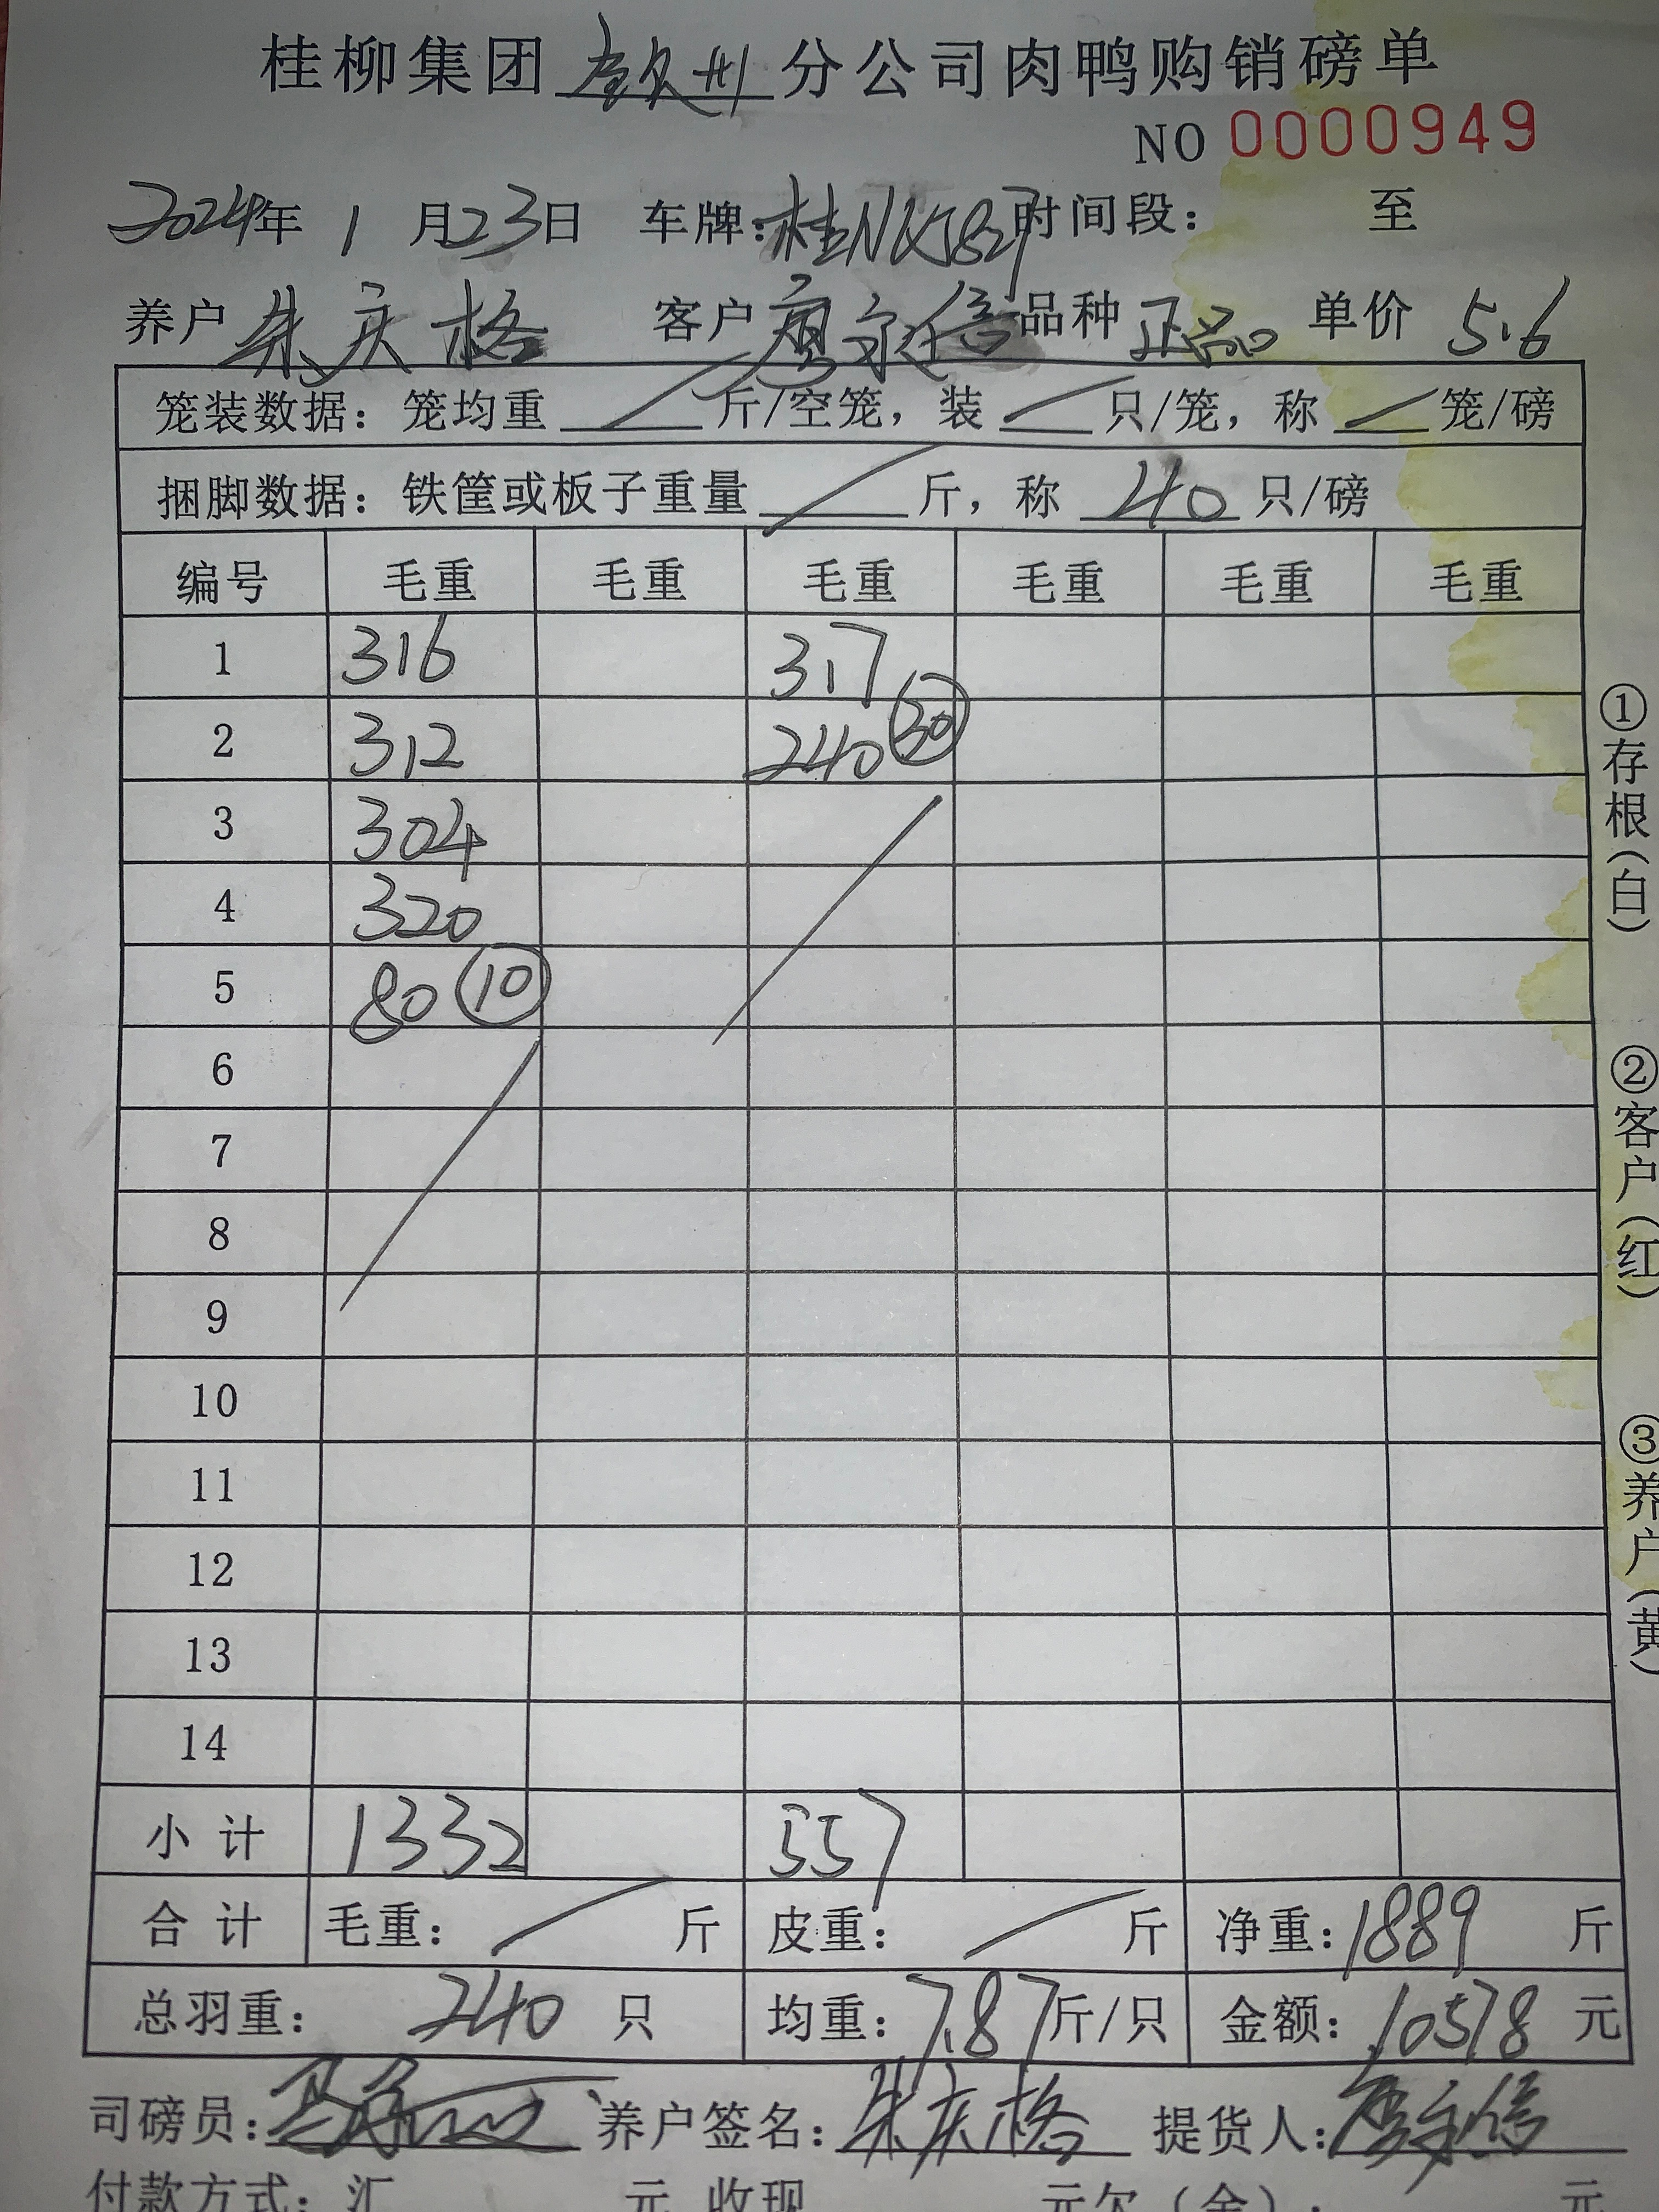 桂柳集团钦州分公司肉鸭购销磅单
NO 0000949
2024年 1 月23日 车牌:桂NK5827时间段: 至
养户 朱庆格 客户 廖 品种 正品 单价 5.6
笼装数据: 笼均重 斤/空笼, 装 只/笼, 称 笼/磅
捆脚数据: 铁筐或板子重量 斤, 称 40 只/磅
编号 毛重 毛重 毛重 毛重 毛重 毛重
1 316 317
2 312 240 30
3 304
4 320
5 80 10
6
7
8
9
10
11
12
13
14
小计 1332 557
合计 毛重: 斤 皮重: 斤 净重: 1889 斤
总羽重: 240 只 均重: 7.87斤/只 金额: 10578 元
司磅员: 养户签名: 朱庆格 提货人: 廖
付款方式: 汇 元 收现 元欠(余): 元
①存根(白)
②客户(红)
③养户(黄)